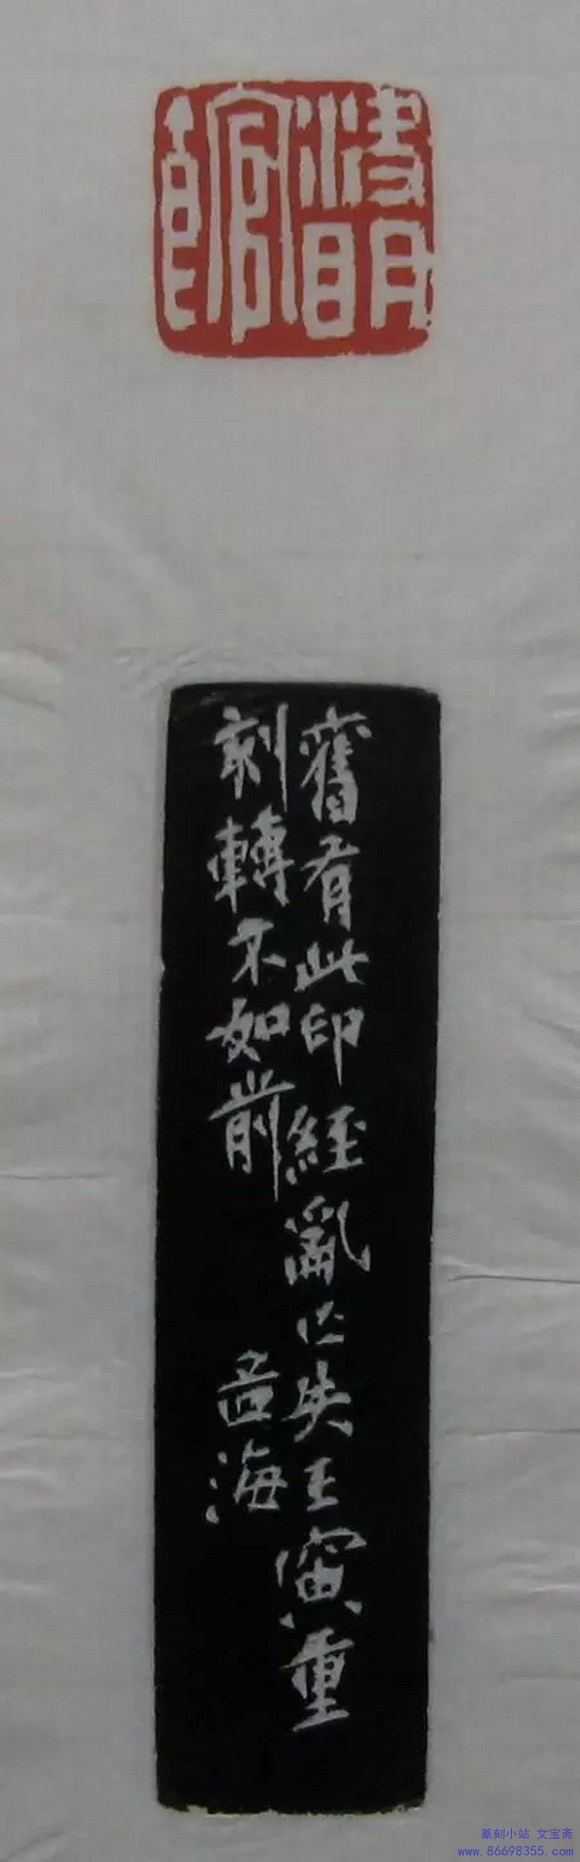 決明館
舊有此印經亂亾失壬寅重
刻轉不如前
孟海
篆刻小站 文宝斋
www.86698355.com